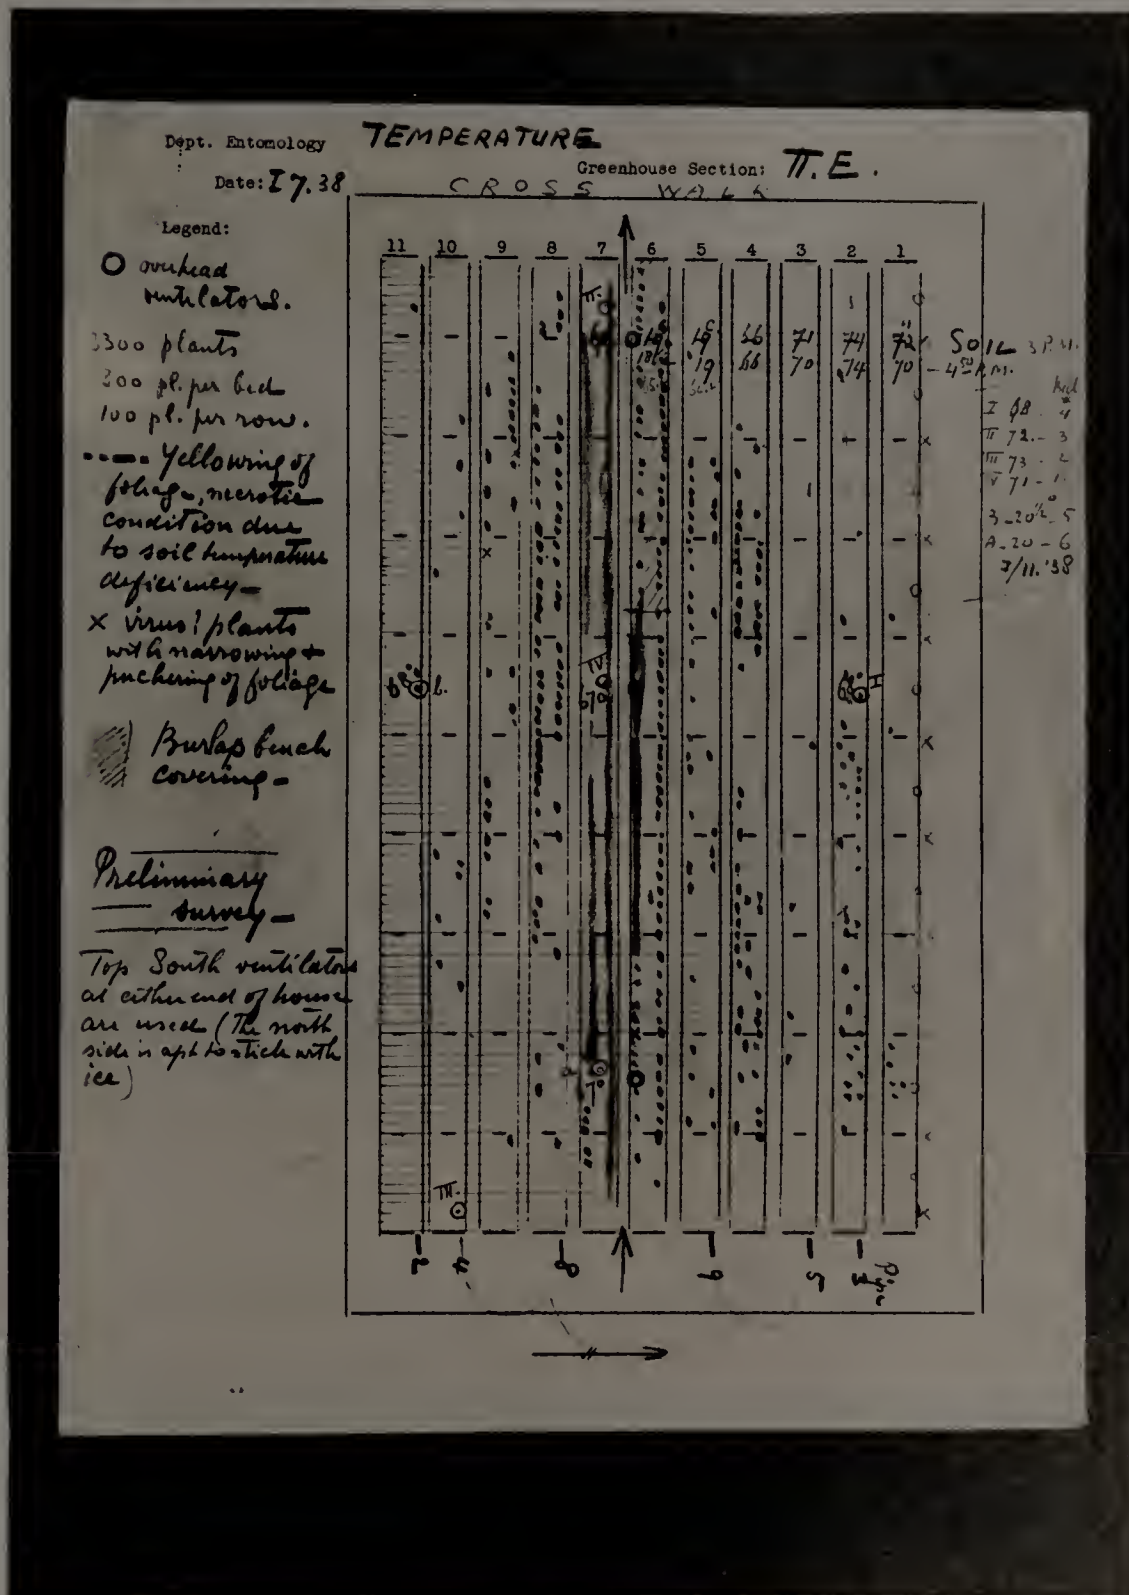 Dept. Entomology
TEMPERATURE
Greenhouse Section: II. E.
Date: I 7.38
CROSS WALK
Legend:
O overhead
ventilators.
3300 plants
300 pl. per bed
100 pl. per row.
Yellowing of
foliage, necrotic
condition due
to soil temperature
deficiency—
X virus? plants
with narrowing +
puckering of foliage
Burlap bench
covering—
Preliminary
survey—
Top South ventilators
at either end of house
are used (The north
side is apt to stick with
ice)
11 10 9 8 7 6 5 4 3 2 1
19 66 71 74 72 SOIL 3 P.M.
19 66 70 74 70 - 4 P.M.
I 68 . 4
II 72 - 3
III 73 - 2
V 71 - 1
3 - 20½ - 5
A - 20 - 6
7/11.'38
IV
67°
68° II
III.
2 4 8 9 5 3 Pipe